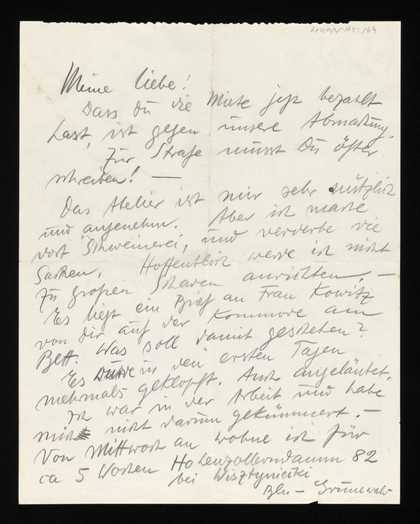 Meine liebe!
Dass Du die Miete jetzt bezahlt
hast, ist gegen unsere Abmachung.
Zur Strafe musst Du öfter
schreiben! —
Das Atelier ist mir sehr nützlich
und angenehm. Aber ich mache
dort Schweinerei, und verderbe die
Sachen. Hoffentlich werde ich nicht
zu großen Schaden anrichten. —
Es liegt ein Brief an Frau Kowitz
von Dir auf der Kommode am
Bett. Was soll damit geschehen?
Es wurde in den ersten Tagen
mehrmals geklopft. Auch angeläutet.
Ich war in der Arbeit und habe
mich nicht darum gekümmert. —
Von Mittwoch an wohne ich für
ca 5 Wochen Hohenzollerndamm 82
bei
Bln — Grunewald